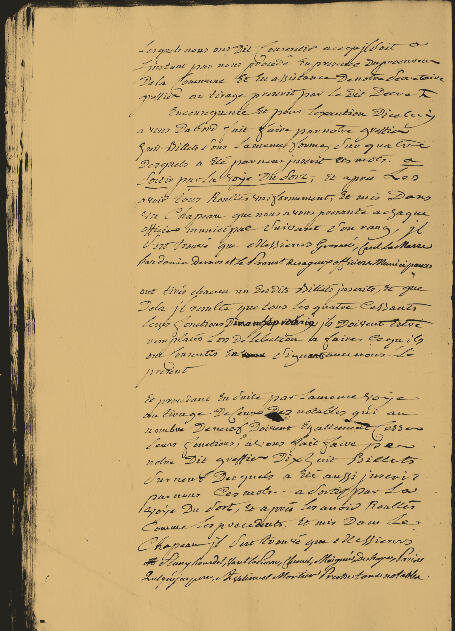 Lesquels nous ont Dit Consentir a ce qu'il soit a
L'instant par nous procédé En presence Du procureur
De la Commune Et En assistance De notre Secretaire
greffier au tirage prescrit par le Dit Decret
En consequence Et pour l'execution D'icelui
avons D'abord fait faire par notre greffier
huit Billets tous La meme forme, Sur quatre
Desquels a Eté par nous inscrit ces mots. a
Sortir par La Voye Du Sort, Et après Les
avoir tous Roullés uniformement, Et mis Dans
un Chapeau que nous avons presenté a chaque
officier municipal Suivant Son rang, il
S'est trouvé que Messieurs
officiers Municipaux
ont tirés chacun un Desdits Billets inscrits, Et que
De la il resulte que tous les quatre Cessants
leurs fonctions ils Doivent Estre
remplacés lors De l'election a faire Ce qu'ils
ont Consentis En Signant avec nous Le
présent
Et procedant En Suite par La meme Voye
au tirage De ceux Des notables qui au
nombre De neuf Doivent Egallement Cesser
Leurs fonctions, avons fait faire par
notre Dit greffier Dix huit Billets
Sur neuf Desquels a Eté aussi inscrit
par nous Ces mots - a Sortir par La
Voye Du Sort, Et après les avoir Roullés
Comme les precedents, Et mis Dans Le
Chapeau il S'est trouvé que Messieurs
et Mortier notables